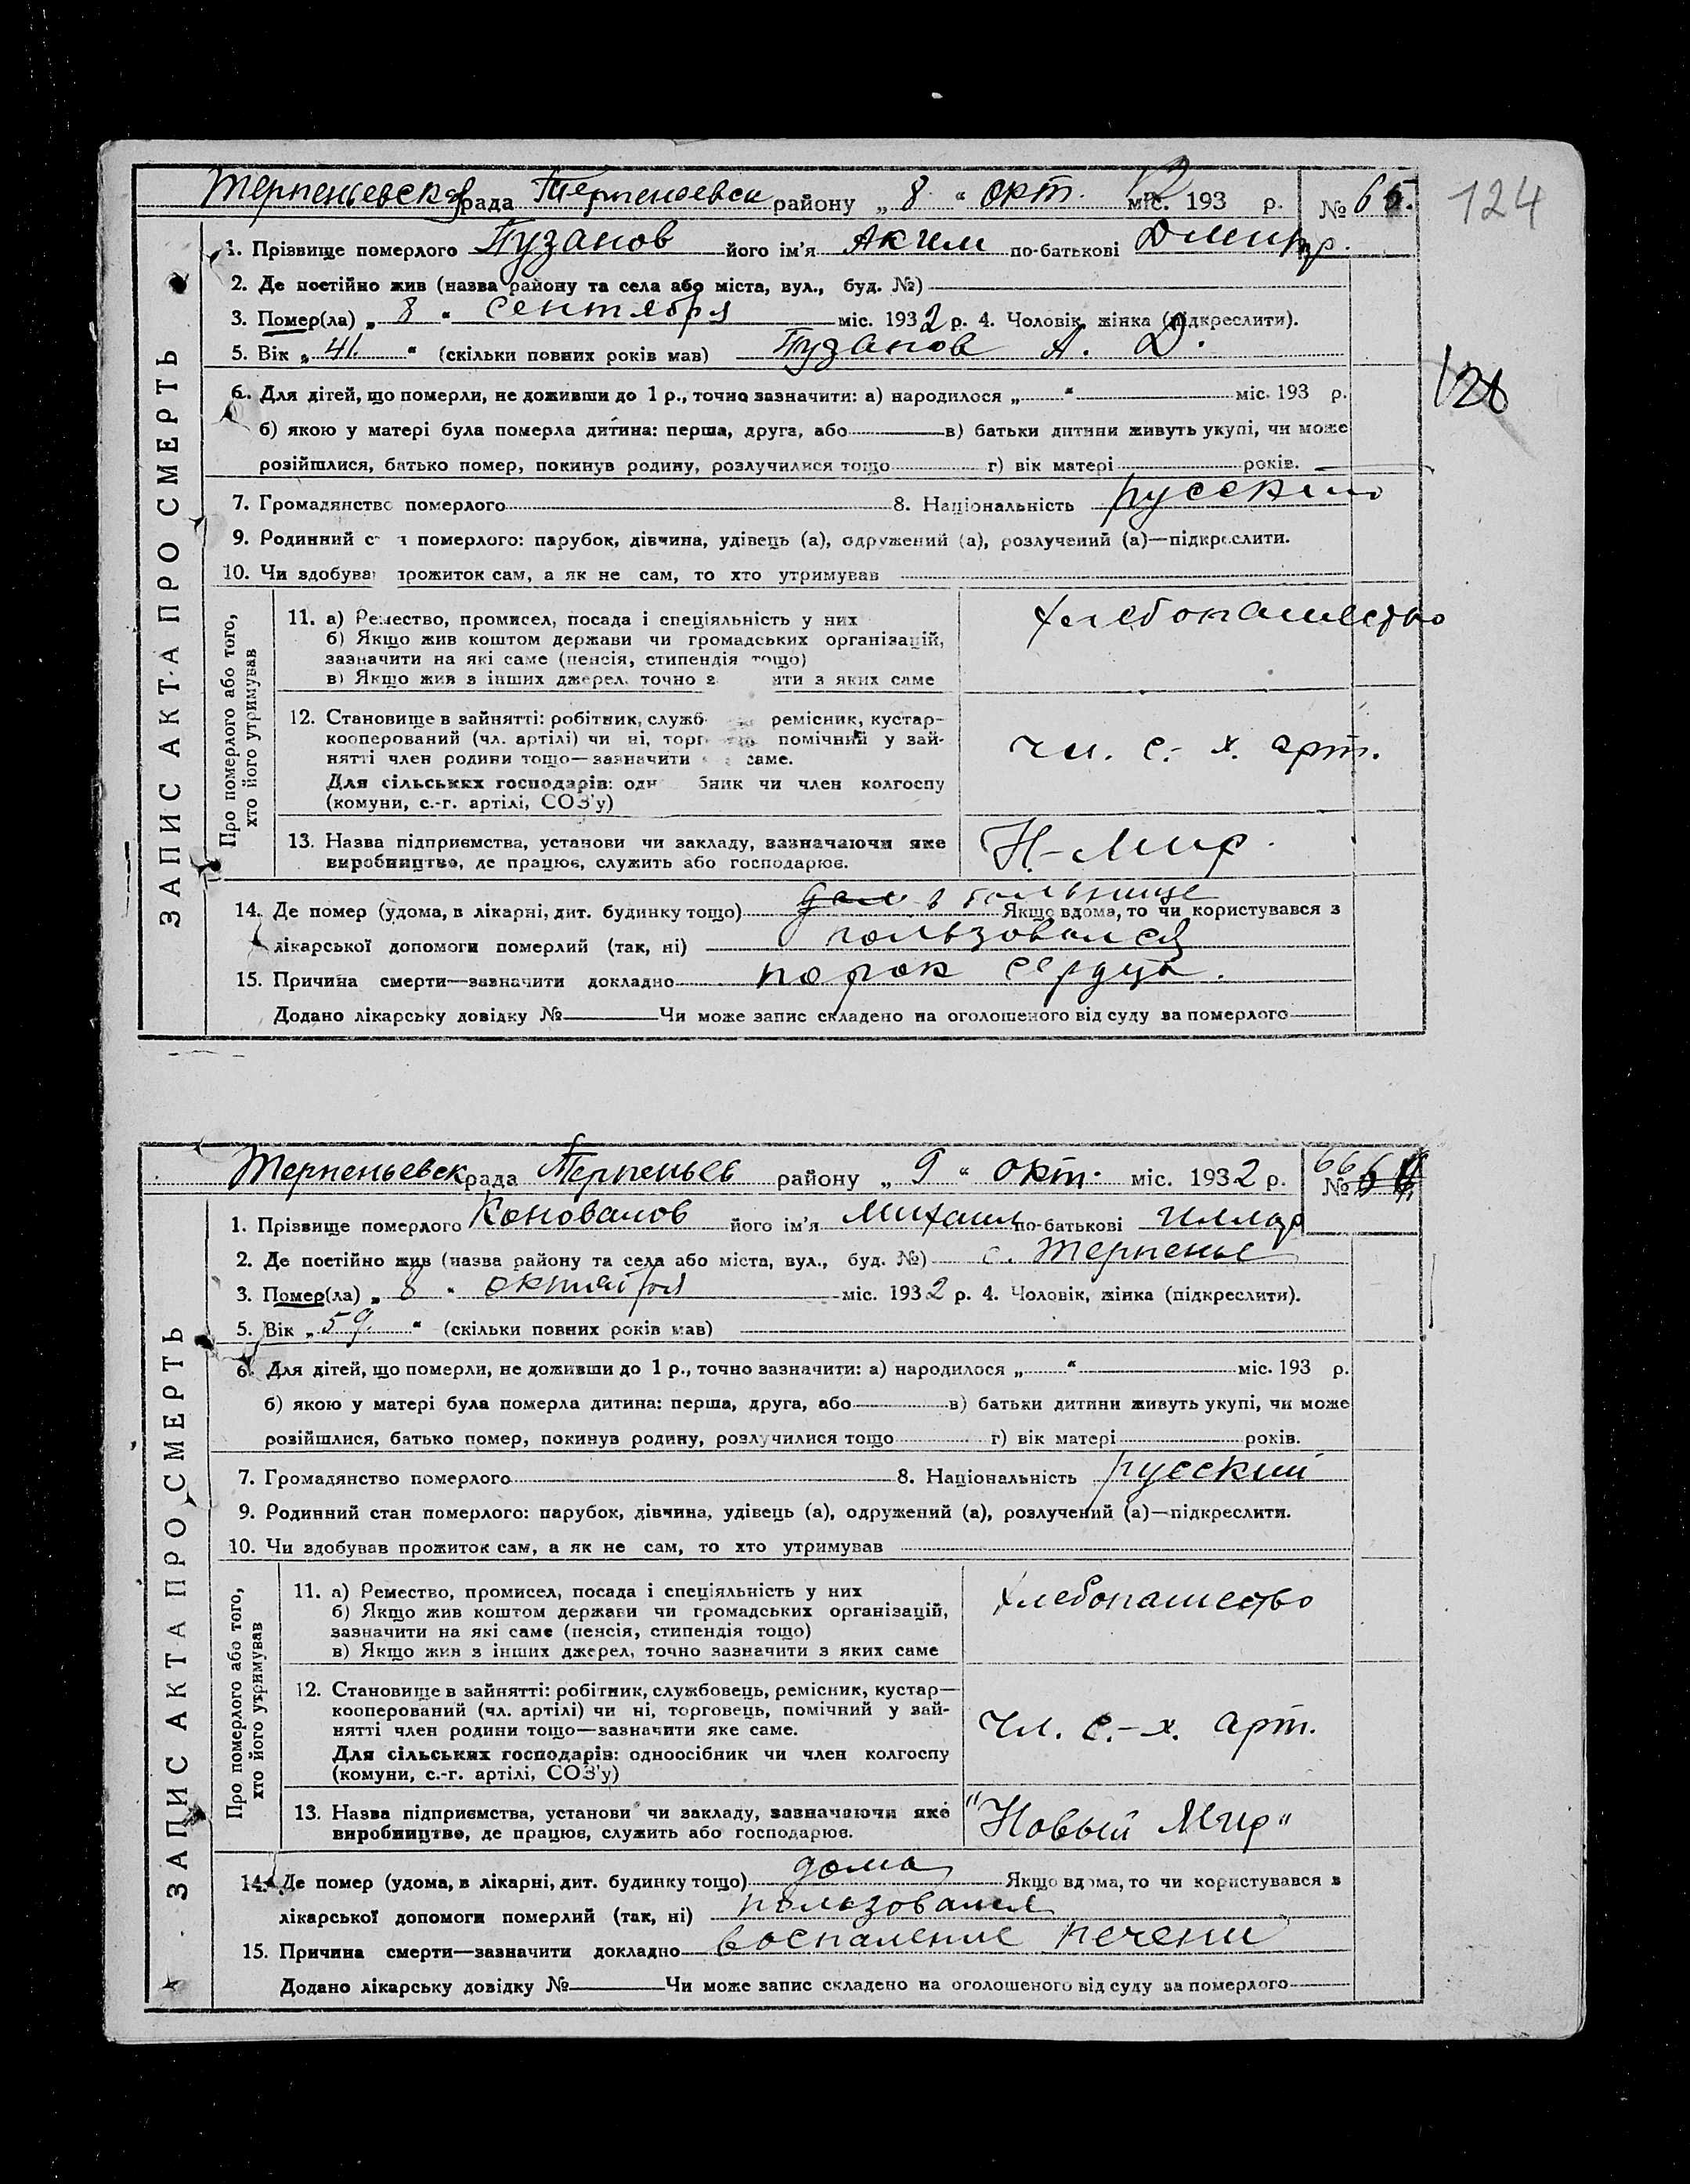 Терпеньевская рада Терпеньевск району „ 8 “ окт. міс. 193 р. № 65.
124
1. Прізвище померлого Пузанов його ім'я Аким по-батькові Дмитр.
2. Де постійно жив (назва району та села або міста, вул., буд. №)
3. Помер(ла) „ 8 “ сентября міс. 1932 р. 4. Чоловік, жінка (підкреслити).
5. Вік „ 41. “ (скільки повних років мав) Пузанов А. Д.
6. Для дітей, що померли, не доживши до 1 р., точно зазначити: а) народилося „ “ міс. 193 р.
б) якою у матері була померла дитина: перша, друга, або в) батьки дитини живуть укупі, чи може
розійшлися, батько помер, покинув родину, розлучилися тощо г) вік матері років.
7. Громадянство померлого 8. Національність русский
9. Родинний с я померлого: парубок, дівчина, удівець (а), одружений (а), розлучений (а)—підкреслити.
10. Чи здобува прожиток сам, а як не сам, то хто утримував
ЗАПИС АКТА ПРО СМЕРТЬ
Про померлого або того, хто його утримував
11. а) Ремество, промисел, посада і спеціяльність у них
б) Якщо жив коштом держави чи громадських організацій,
зазначити на які саме (пенсія, стипендія тощо)
в) Якщо жив з інших джерел, точно з ити з яких саме
хлебопашество
12. Становище в зайнятті: робітник, служб ремісник, кустар-
кооперований (чл. артілі) чи ні, торг помічний у зай-
нятті член родини тощо—зазначити саме.
Для сільських господарів: одн бник чи член колгоспу
(комуни, с.-г. артілі, СОЗ'у)
чл. с.-х. арт.
13. Назва підприємства, установи чи закладу, зазначаючи яке
виробництво, де працює, служить або господарює.
Н-Мир.
14. Де помер (удома, в лікарні, дит. будинку тощо) в больнице Якщо вдома, то чи користувався з
лікарської допомоги померлий (так, ні) пользовался
15. Причина смерти—зазначити докладно порок сердца.
Додано лікарську довідку № Чи може запис складено на оголошеного від суду за померлого
Терпеньевск рада Терпеньев району „ 9 “ окт. міс. 1932 р. № 66
1. Прізвище померлого Коновалов його ім'я Михаил по-батькові Иллар
2. Де постійно жив (назва району та села або міста, вул., буд. №) с. Терпенье
3. Помер(ла) „ 8 “ октября міс. 1932 р. 4. Чоловік, жінка (підкреслити).
5. Вік „ 59. “ (скільки повних років мав)
6. Для дітей, що померли, не доживши до 1 р., точно зазначити: а) народилося „ “ міс. 193 р.
б) якою у матері була померла дитина: перша, друга, або в) батьки дитини живуть укупі, чи може
розійшлися, батько помер, покинув родину, розлучилися тощо г) вік матері років.
7. Громадянство померлого 8. Національність русский
9. Родинний стан померлого: парубок, дівчина, удівець (а), одружений (а), розлучений (а)—підкреслити.
10. Чи здобував прожиток сам, а як не сам, то хто утримував
ЗАПИС АКТА ПРО СМЕРТЬ
Про померлого або того, хто його утримував
11. а) Ремество, промисел, посада і спеціяльність у них
б) Якщо жив коштом держави чи громадських організацій,
зазначити на які саме (пенсія, стипендія тощо)
в) Якщо жив з інших джерел, точно зазначити з яких саме
хлебопашество
12. Становище в зайнятті: робітник, службовець, ремісник, кустар—
кооперований (чл. артілі) чи ні, торговець, помічний у зай-
нятті член родини тощо—зазначити яке саме.
Для сільських господарів: одноосібник чи член колгоспу
(комуни, с.-г. артілі, СОЗ'у)
чл. с.-х. арт.
13. Назва підприємства, установи чи закладу, зазначаючи яке
виробництво, де працює, служить або господарює.
"Новый Мир"
14. Де помер (удома, в лікарні, дит. будинку тощо) дома Якщо вдома, то чи користувався з
лікарської допомоги померлий (так, ні) пользовался
15. Причина смерти—зазначити докладно воспаление печени
Додано лікарську довідку № Чи може запис складено на оголошеного від суду за померлого